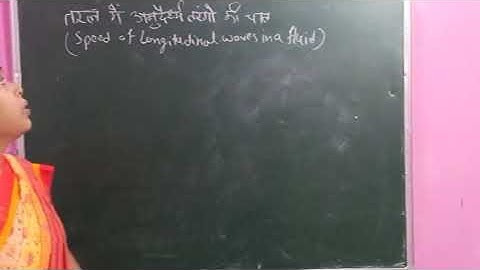 तरल में अनुदैर्ध्य तरंगों की चाल
(Speed of Longitudinal waves in a fluid)